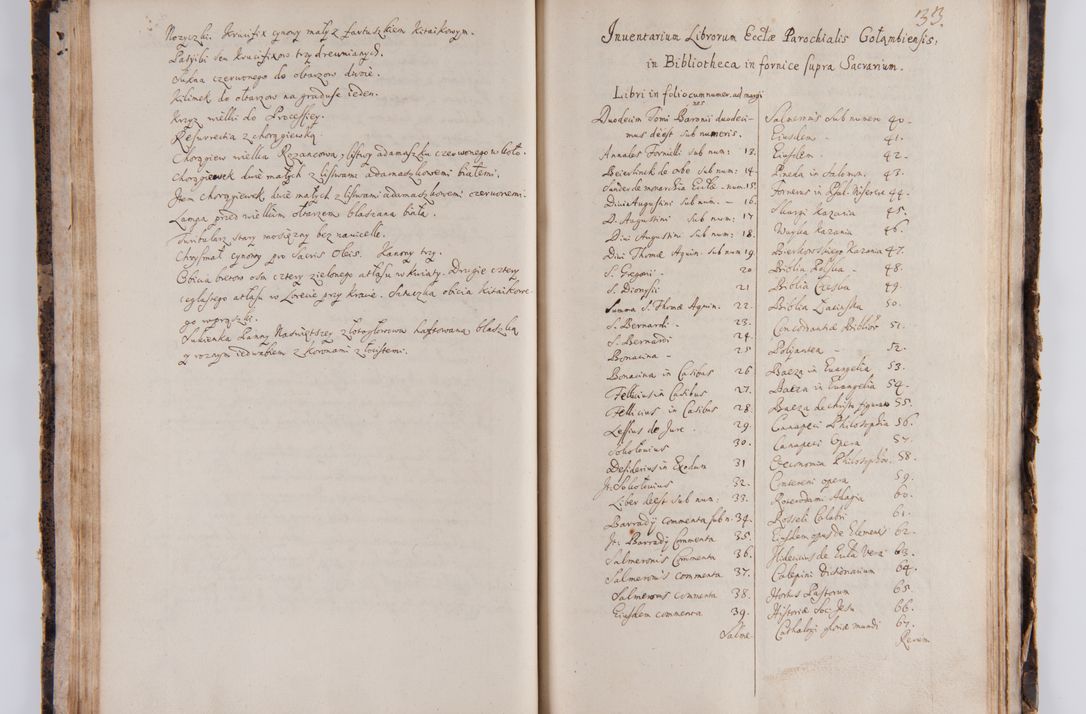 Nozyczki. Krucifix cynowy mały z fartuszkiem kitaikowym.
Pasyiki seu krucifixow trzy drewnianych.
Sukna czerwonego do ołtarzow dwoie.
Kilimek do ołtarzow na graduse ieden.
Krzyz wielki do Processiey.
Resurrectia z chorągiewką.
Chorągiew wielka Rozancowa z listwy adamaszku czerwonego w koło.
Chorągiewek dwie małych z listwami adamaszkowemi białemi.
Item chorągiewek dwie małych z listwami adamaszkowemi czerwonemi.
Lampa przed wielkim ołtarzem blaszana biała.
Turibularz stary mosięzny bez nawicelle.
Chrysmał cynowy pro Sacris Oleis. Kanony trzy.
Obicia bretow osm cztery zielonego atłasu w kwiaty. Drugie cztery
ceglastego atłasu w kwiaty. Sztuczka obicia kitaikowe-
go w prązki.
Sukienka Panny Naswiętszey złotogłowowa haftowana blaszką
y roznym iedwabiem z koronami złocistemi.
33
Inventarium Librorum Ecclæ Parochialis Gołambiensis,
in Bibliotheca in fornice supra Sacrarium.
Libri in folio cum numer. ad margi
nes
Duodecim Tomi Baronii duodeci-
mus deest sub numeris.
Annales Tornielli sub num: 13.
Beierlinck de orbe sub num: 14.
Sander de monarchia Eccle - num. 15.
Divi Augustini sub num. - 16.
D. Augustini sub num: 17
Divi Augustini sub num: 18.
Divi Thomæ Aquin. sub num 19.
S. Gregorii - 20
S. Dionysii 21
Summa S. Thomæ Aquin. 22.
S. Bernardi - 23.
S. Bernardi 24.
Bonacina - 25
Bonacina in Casibus 26
Fellicius in Casibus 27.
Fellicius in Casibus 28.
Lessius de Jure. 29.
Sokołovius 30.
Desiderius in Exodum 31
It: Sokołovius 32.
Liber deest sub num: 33.
Barradij commenta sub n. 34.
It: Barradij Commenta 35.
Salmeronis Commenta 36.
Salmeronis commenta 37.
Salmeronis Commenta 38.
Eiusdem commenta 39.
Salme
Salmeronis sub numero 40.
Eiusdem - 41.
Eiusdem - 42.
Pineda in Salomon. 43.
Fornerus in Psal. Miserere 44.
Skargi Kazania 45.
Wuyka Kazania 46.
Bierkowskiego Kazania 47.
Biblia Polska - 48.
Biblia Czeska 49.
Biblia Łacinska 50.
Concordantiæ Biblior. 51.
Polijantea - 52.
Baeza in Evangelia 53.
Baeza in Evangelia 54.
Baeza de christo figurato 55.
Canapeci Philosophia 56.
Canapeci Opera 57.
Œconomia Philosophor. 58.
Contereni opera 59.
Roterodami Adagia 60.
Rosseli Calabri 61.
Eiusdem opus de Elementis 62.
Hideccius de Eccla vera 63.
Calepini Dictionarium 64.
Hortus Pastorum 65.
Historiæ Soc: Jesu 66.
Cathalogi gloriæ mundi 67.
Rerum